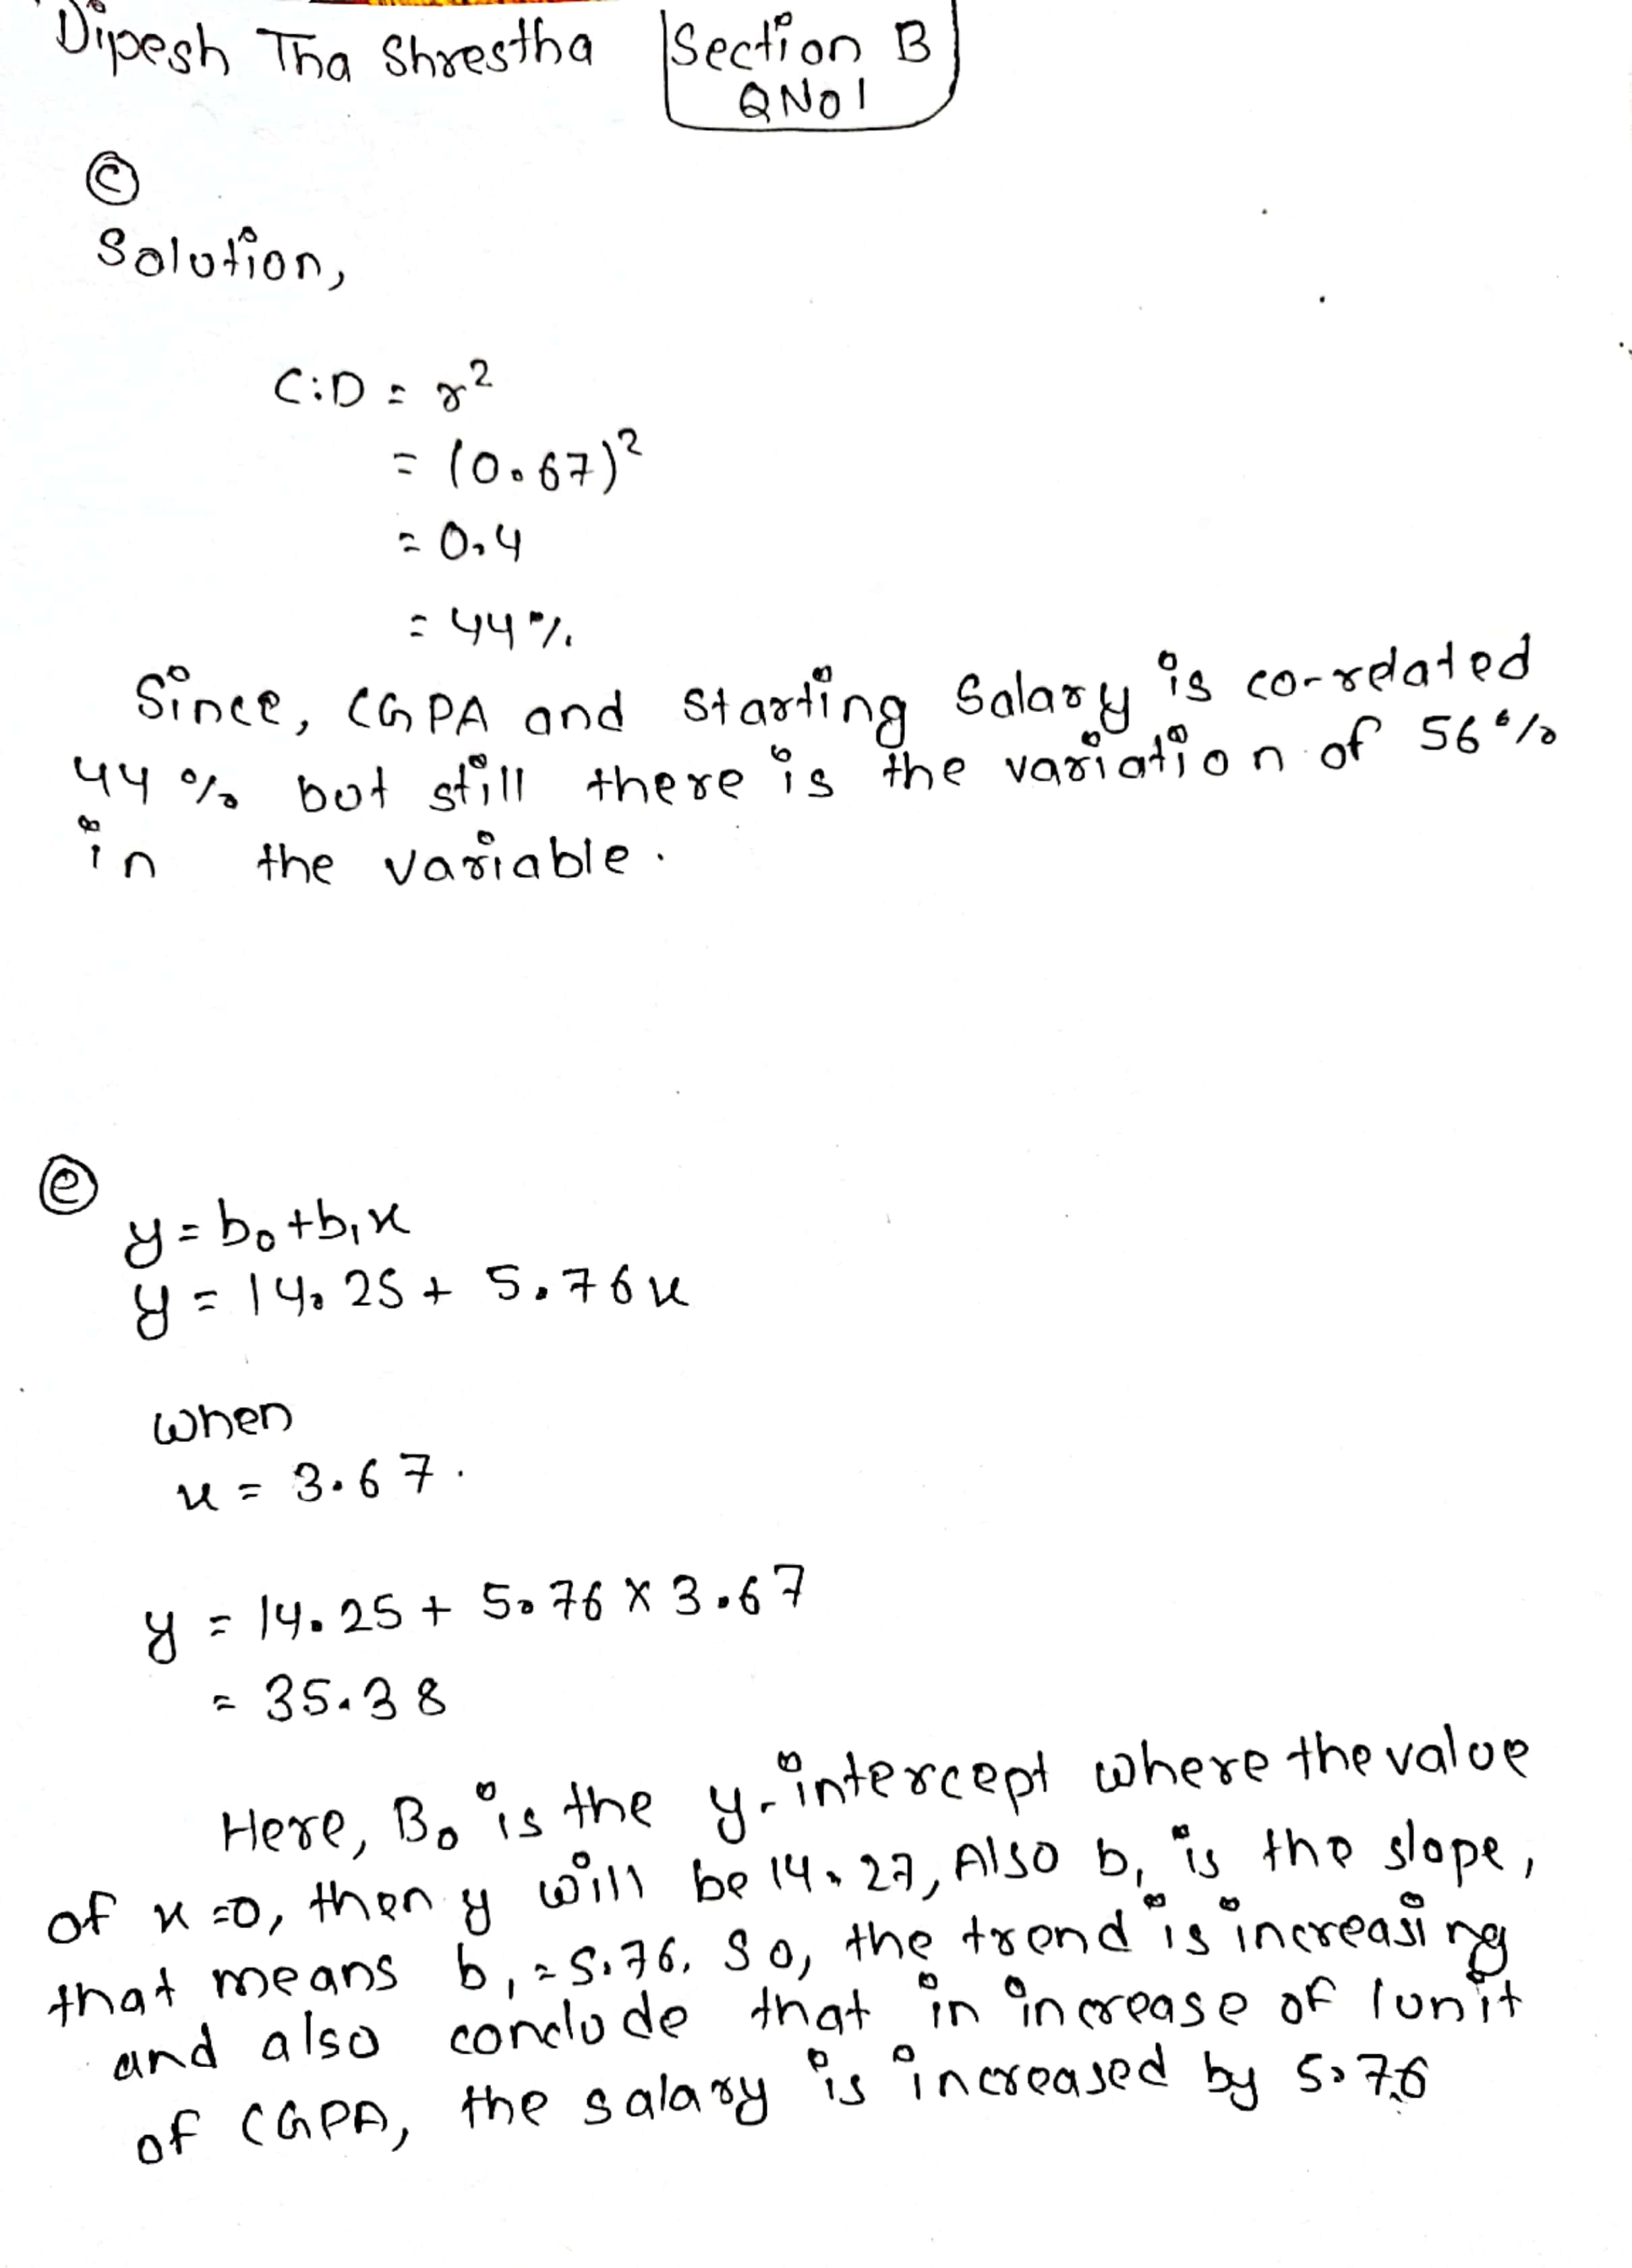 Dipesh Tha Shrestha
Section B
QNo1
c
Solution,
C.D = r²
= (0.67)²
= 0.4
= 44%
Since, CGPA and Starting Salary is co-related
44% but still there is the variation of 56%
in the variable.
e
y = b₀+b₁x
y = 14.25 + 5.76x
when
x = 3.67.
y = 14.25 + 5.76 × 3.67
= 35.38
Here, B₀ is the y-intercept where the value
of x=0, then y will be 14.27, Also b₁ is the slope,
that means b₁=5.76. So, the trend is increasing
and also conclude that in increase of 1unit
of CGPA, the salary is increased by 5.76